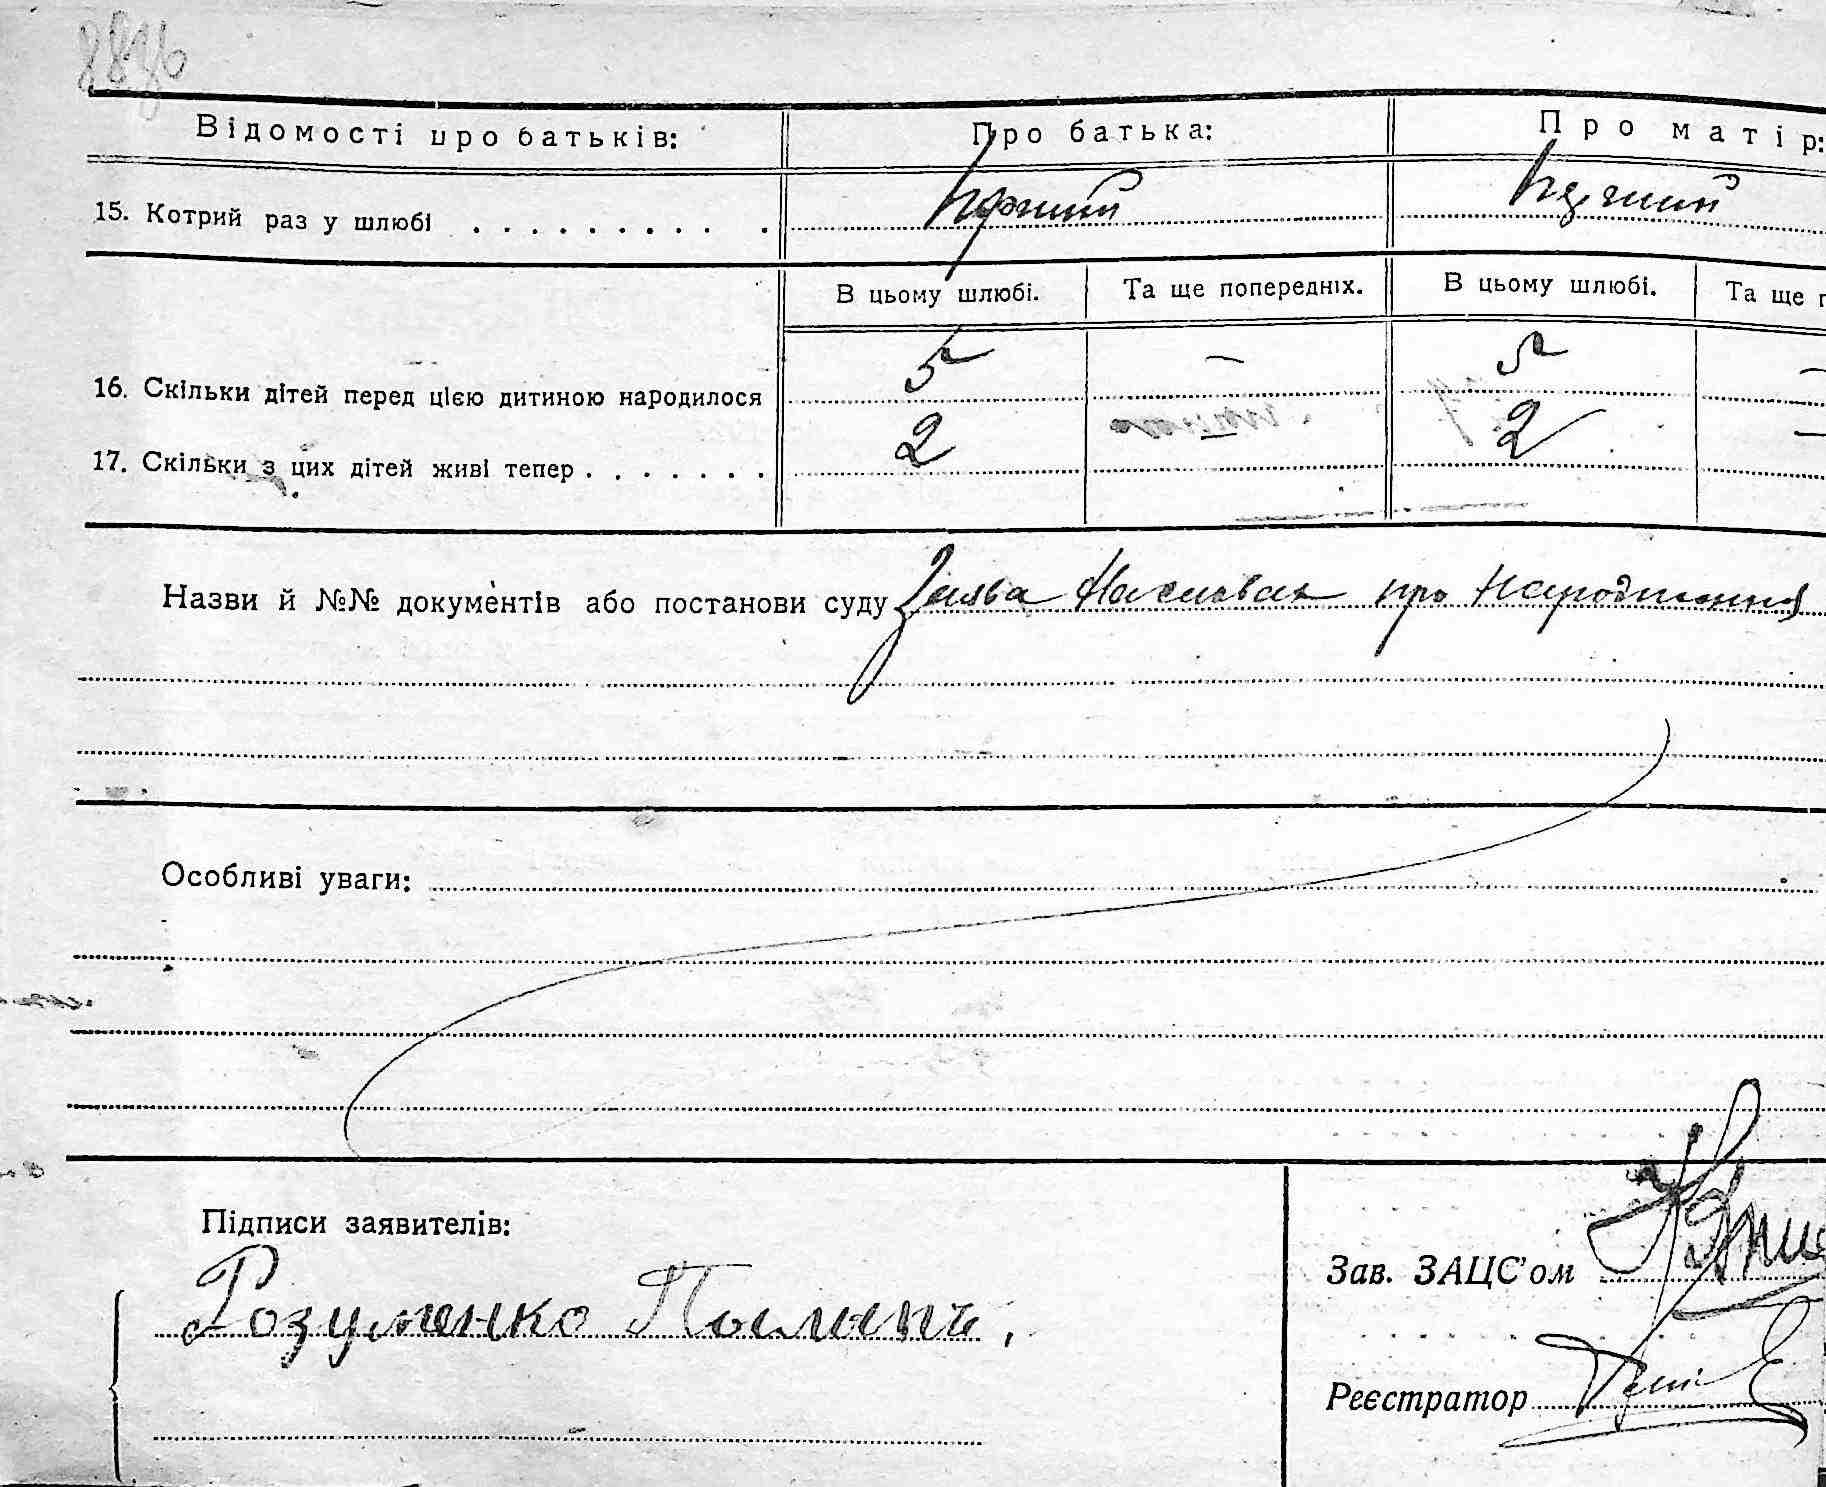 88зв
Відомості про батьків: Про батька: Про матір:
15. Котрий раз у шлюбі . . . . . . . . . . Перший Перший
В цьому шлюбі. Та ще попередніх. В цьому шлюбі. Та ще п
16. Скільки дітей перед цією дитиною народилося 5 — 5 —
17. Скільки з цих дітей живі тепер . . . . . . . 2 2 —
Назви й №№ документів або постанови суду Заява про народження
Особливі уваги:
Підписи заявителів:
Розуменко
Зав. ЗАЦС'ом
Реєстратор